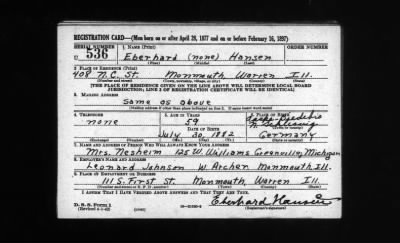 REGISTRATION CARD—(Men born on or after April 28, 1877 and on or before February 16, 1897)
SERIAL NUMBER 1. NAME (Print) ORDER NUMBER
U 536 Eberhard (none) Hansen
2. PLACE OF RESIDENCE (Print)
408 N.C. St. Monmouth Warren Ill.
(Number and street) (Town, township, village, or city) (County) (State)
[THE PLACE OF RESIDENCE GIVEN ON THE LINE ABOVE WILL DETERMINE LOCAL BOARD
JURISDICTION; LINE 2 OF REGISTRATION CERTIFICATE WILL BE IDENTICAL]
3. MAILING ADDRESS
Same as above
[Mailing address if other than place indicated on line 2. If same insert word same]
4. TELEPHONE 5. AGE IN YEARS 6. PLACE OF BIRTH
none 59
DATE OF BIRTH
July 30, 1882 Germany
(Mo.) (Day) (Yr.) (State or country)
7. NAME AND ADDRESS OF PERSON WHO WILL ALWAYS KNOW YOUR ADDRESS
Mrs. Nesheim 125 W. Williams Greenville, Michigan
8. EMPLOYER'S NAME AND ADDRESS
Leonard Johnson W Archer Monmouth, Ill.
9. PLACE OF EMPLOYMENT OR BUSINESS
111 S. First St. Monmouth, Warren Ill
(Number and street or R. F. D. number) (Town) (County) (State)
I AFFIRM THAT I HAVE VERIFIED ABOVE ANSWERS AND THAT THEY ARE TRUE.
D. S. S. Form 1
(Revised 4-1-42)
Eberhard Hansen
(Registrant's signature)